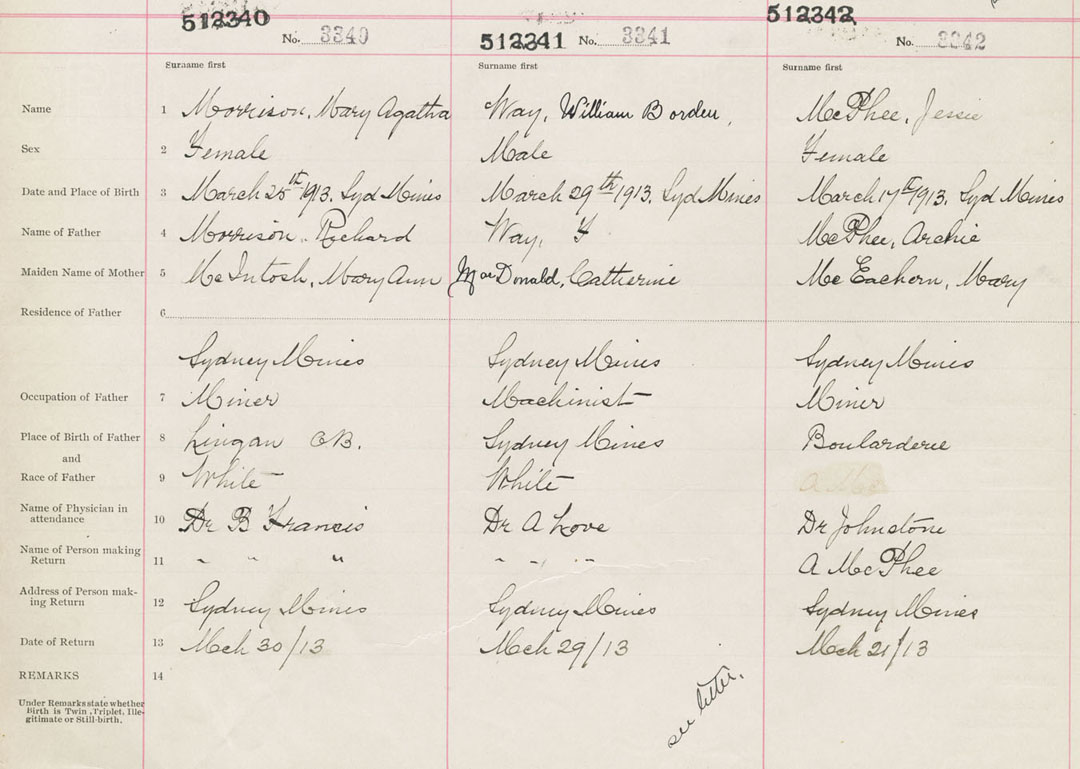 512340 No. 3340 512341 No. 3341 512342 No. 3342
Surname first Surname first Surname first
Name 1 Morrison, Mary Agatha Way, William Borden, McPhee, Jessie
Sex 2 Female Male Female
Date and Place of Birth 3 March 25th 1913. Syd Mines March 29th 1913. Syd Mines March 17th 1913. Syd Mines
Name of Father 4 Morrison, Richard Way, F McPhee, Archie
Maiden Name of Mother 5 McIntosh, Mary Ann MacDonald, Catherine McEachern, Mary
Residence of Father 6
Sydney Mines Sydney Mines Sydney Mines
Occupation of Father 7 Miner Machinist Miner
Place of Birth of Father 8 Lingan CB. Sydney Mines Boularderie
and
Race of Father 9 White White A Mc
Name of Physician in
attendance 10 Dr B Francis Dr A Love Dr Johnstone
Name of Person making
Return 11 " " " " " " A McPhee
Address of Person mak-
ing Return 12 Sydney Mines Sydney Mines Sydney Mines
Date of Return 13 Mch 30/13 Mch 29/13 Mch 21/13
REMARKS 14
Under Remarks state whether
Birth is Twin, Triplet, Ille-
gitimate or Still-birth.
see letter.